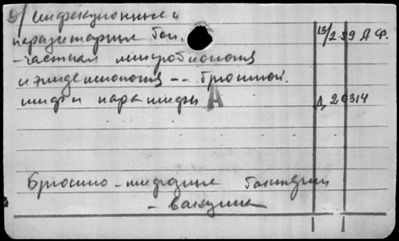 д/ инфекционные и
паразитарные бол. 13/2-59 А.Ф.
- частная микробиология
и эпидемиология -- брюшной.
тиф и паратифы А Д 20314
Брюшно-тифозные бактерии
- вакцина